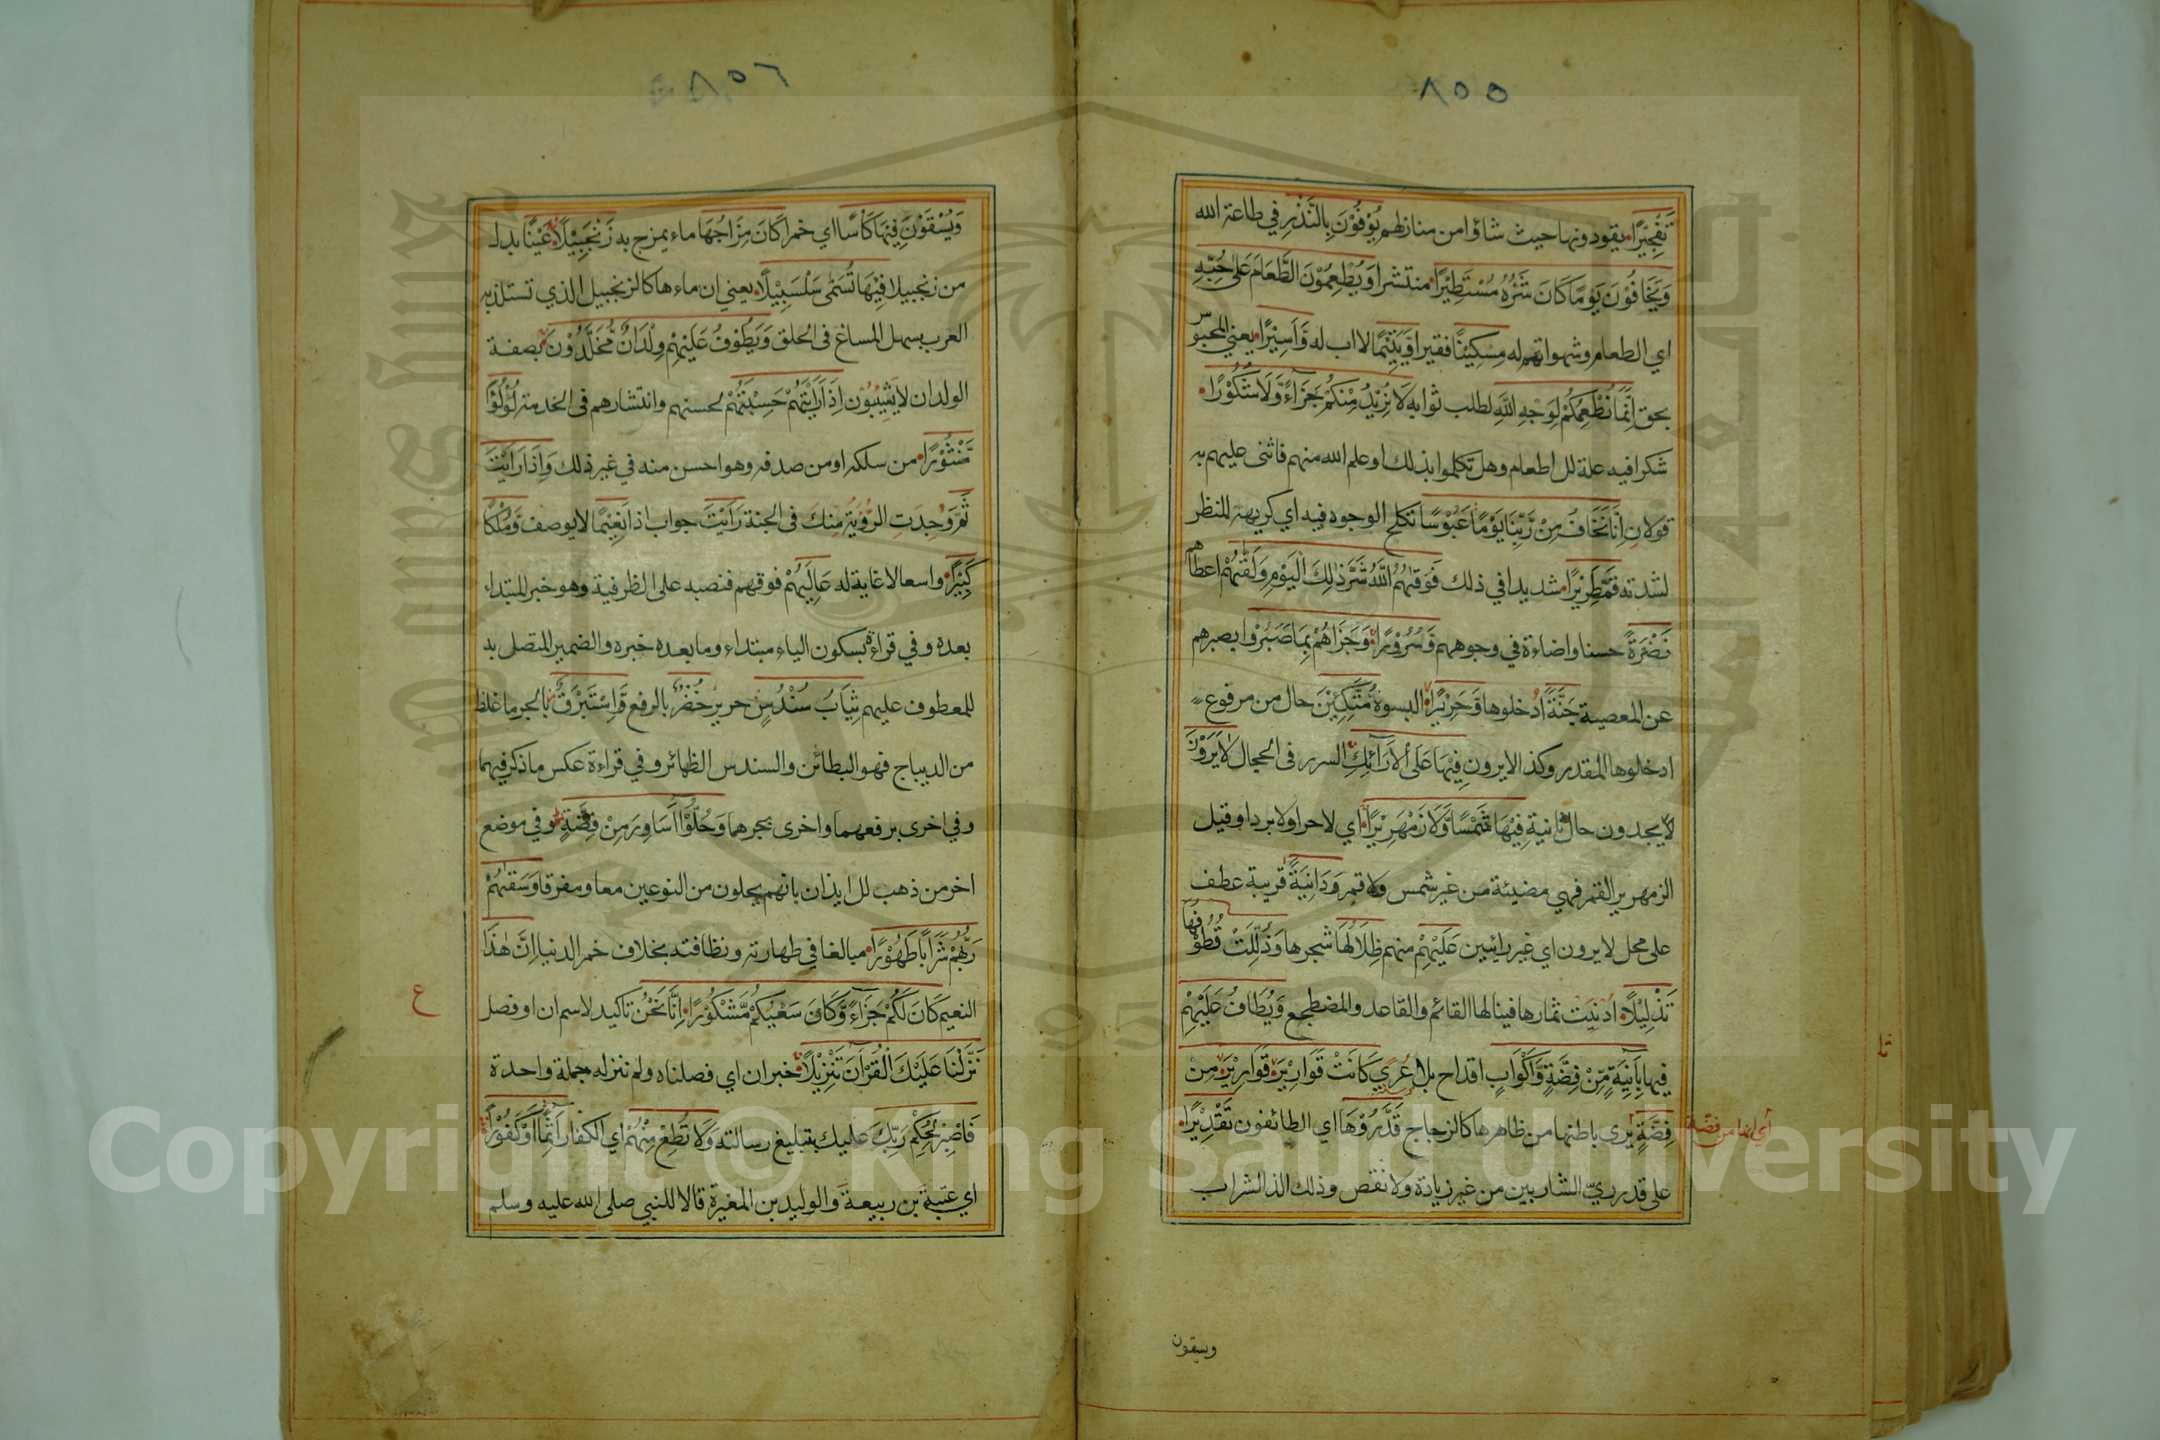 ٨٥٥
تَفْجِيْرًا يقودونها حيث شاؤا من منازلهم يُوْفُوْنَ بِالنَّذْرِ في طاعة الله
وَيَخَافُوْنَ يَوْمًا كَانَ شَرُّهُ مُسْتَطِيْرًا منتشرا وَيُطْعِمُوْنَ الطَّعَامَ عَلٰى حُبِّهٖ
اي الطعام وشهواتهم له مِسْكِيْنًا فقيرا وَّيَتِيْمًا لا اب له وَّاَسِيْرًا يعني المحبوس
بحق اِنَّمَا نُطْعِمُكُمْ لِوَجْهِ اللّٰهِ لطلب ثوابه لَا نُرِيْدُ مِنْكُمْ جَزَآءً وَّلَا شُكُوْرًا
شكرا فيه علة للاطعام وهل تكلموا بذلك او علم الله منهم فاثنى عليهم به
قولان اِنَّا نَخَافُ مِنْ رَّبِّنَا يَوْمًا عَبُوْسًا تكلح الوجوه فيه اي كريهة المنظر
لشدته قَمْطَرِيْرًا شديدا في ذلك فَوَقٰهُمُ اللّٰهُ شَرَّ ذٰلِكَ الْيَوْمِ وَلَقّٰهُمْ اعطاهم
نَضْرَةً حسنا واضاءة في وجوههم وَّسُرُوْرًا وَجَزٰهُمْ بِمَا صَبَرُوْا بصبرهم
عن المعصية جَنَّةً ادخلوها وَّحَرِيْرًا البسوه مُتَّكِـِٕيْنَ حال من مرفوع
ادخلوها المقدر وكذا لا يرون فِيْهَا عَلَى الْاَرَآئِكِ السرر في الحجال لَا يَرَوْنَ
لا يجدون حال ثانية فِيْهَا شَمْسًا وَّلَا زَمْهَرِيْرًا اي لا حرا ولا بردا وقيل
الزمهرير القمر فهي مضيئة من غير شمس ولا قمر وَدَانِيَةً قريبة عطف
على محل لا يرون اي غير رائين عَلَيْهِمْ منهم ظِلٰلُهَا شجرها وَذُلِّلَتْ قُطُوْفُهَا
تَذْلِيْلًا ادنيت ثمارها فينالها القائم والقاعد والمضطجع وَيُطَافُ عَلَيْهِمْ
فيها بِاٰنِيَةٍ مِّنْ فِضَّةٍ وَّاَكْوَابٍ اقداح بلا عُرًي كَانَتْ قَوَارِيْرَا قَوَارِيْرَا مِنْ
فِضَّةٍ يرى باطنها من ظاهرها كالزجاج قَدَّرُوْهَا اي الطائفون تَقْدِيْرًا
أي انها من فضة
على قدر ريّ الشاربين من غير زيادة ولا نقص وذلك الذ الشراب
ويسقون
٨٥٦
وَيُسْقَوْنَ فِيْهَا كَاْسًا اي خمرا كَانَ مِزَاجُهَا ماء يمزج به زَنْجَبِيْلًا عَيْنًا بدل
من زنجبيلا فِيْهَا تُسَمّٰى سَلْسَبِيْلًا يعني ان ماءها كالزنجبيل الذي تستلذ به
العرب سهل المساغ في الحلق وَيَطُوْفُ عَلَيْهِمْ وِلْدَانٌ مُّخَلَّدُوْنَ بصفة
الولدان لا يشيبون اِذَا رَاَيْتَهُمْ حَسِبْتَهُمْ لحسنهم وانتشارهم في الخدمة لُؤْلُؤًا
مَّنْثُوْرًا من سلكه او من صدفه وهو احسن منه في غير ذلك وَاِذَا رَاَيْتَ
ثَمَّ وُجِدَتِ الرؤية مِنك في الجنة رَاَيْتَ جواب اذا نَعِيْمًا لا يوصف وَّمُلْكًا
كَبِيْرًا واسعا لا غاية له عَالِيَهُمْ فوقهم فنصبه على الظرفية وهو خبر المبتداء
بعده وفي قراءة بسكون الياء مبتداء وما بعده خبره والضمير المتصل به
للمعطوف عليهم ثِيَابُ سُنْدُسٍ حرير خُضْرٌ بالرفع وَّاِسْتَبْرَقٌ بالجر ما غلظ
من الديباج فهو البطائن والسندس الظهائر وفي قراءة عكس ما ذكر فيهما
وفي اخرى برفعهما واخرى بجرهما وَحُلُّوْٓا اَسَاوِرَ مِنْ فِضَّةٍ وفي موضع
اخر من ذهب للايذان بانهم يحلون من النوعين معا ومفرقا وَسَقٰهُمْ
رَبُّهُمْ شَرَابًا طَهُوْرًا مبالغا في طهارته ونظافته بخلاف خمر الدنيا اِنَّ هٰذَا
النعيم كَانَ لَكُمْ جَزَآءً وَّكَانَ سَعْيُكُمْ مَّشْكُوْرًا اِنَّا نَحْنُ تاكيد لاسم ان او فصل
ع
نَزَّلْنَا عَلَيْكَ الْقُرْاٰنَ تَنْزِيْلًا خبر ان اي فصلناه ولم ننزله جملة واحدة
فَاصْبِرْ لِحُكْمِ رَبِّكَ عليك بتبليغ رسالته وَلَا تُطِعْ مِنْهُمْ اي الكفار اٰثِمًا اَوْ كَفُوْرًا
اي عتبة بن ربيعة والوليد بن المغيرة قالا للنبي صلى الله عليه وسلم
Copyright © King Saud University